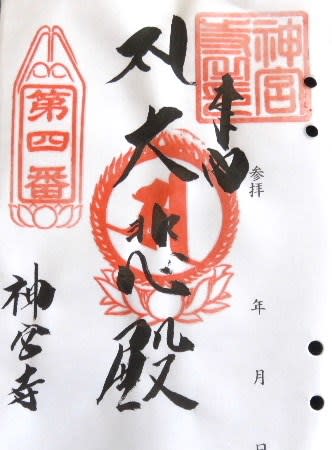 奉
参拝
年 月 日
札 大悲殿
第四番
神宮寺